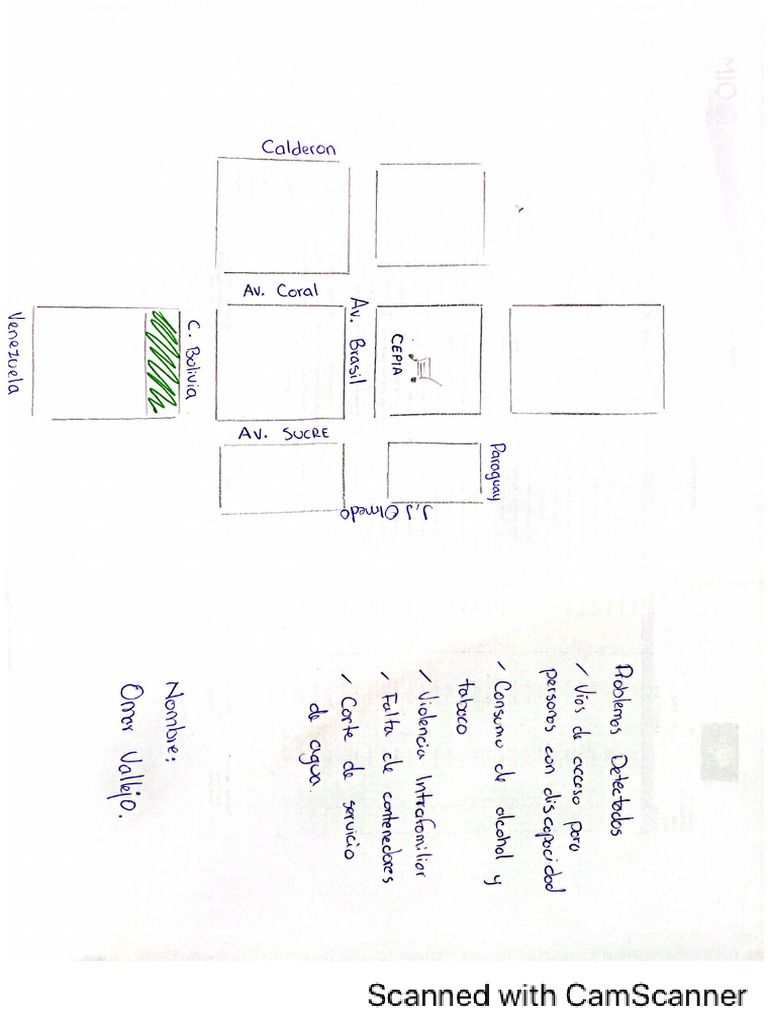 Calderon
Av. Coral
Av. Brasil
CEPIA
C. Bolivia
Venezuela
Av. SUCRE
Paraguay
J.J Olmedo
Problemas Detectados
/ Vías de acceso para
personas con discapacidad
/ Consumo de alcohol y
tabaco
/ Violencia Intrafamiliar
/ Falta de contenedores
/ Corte de servicio
de agua.
Nombre:
Omar Vallejo.
Scanned with CamScanner